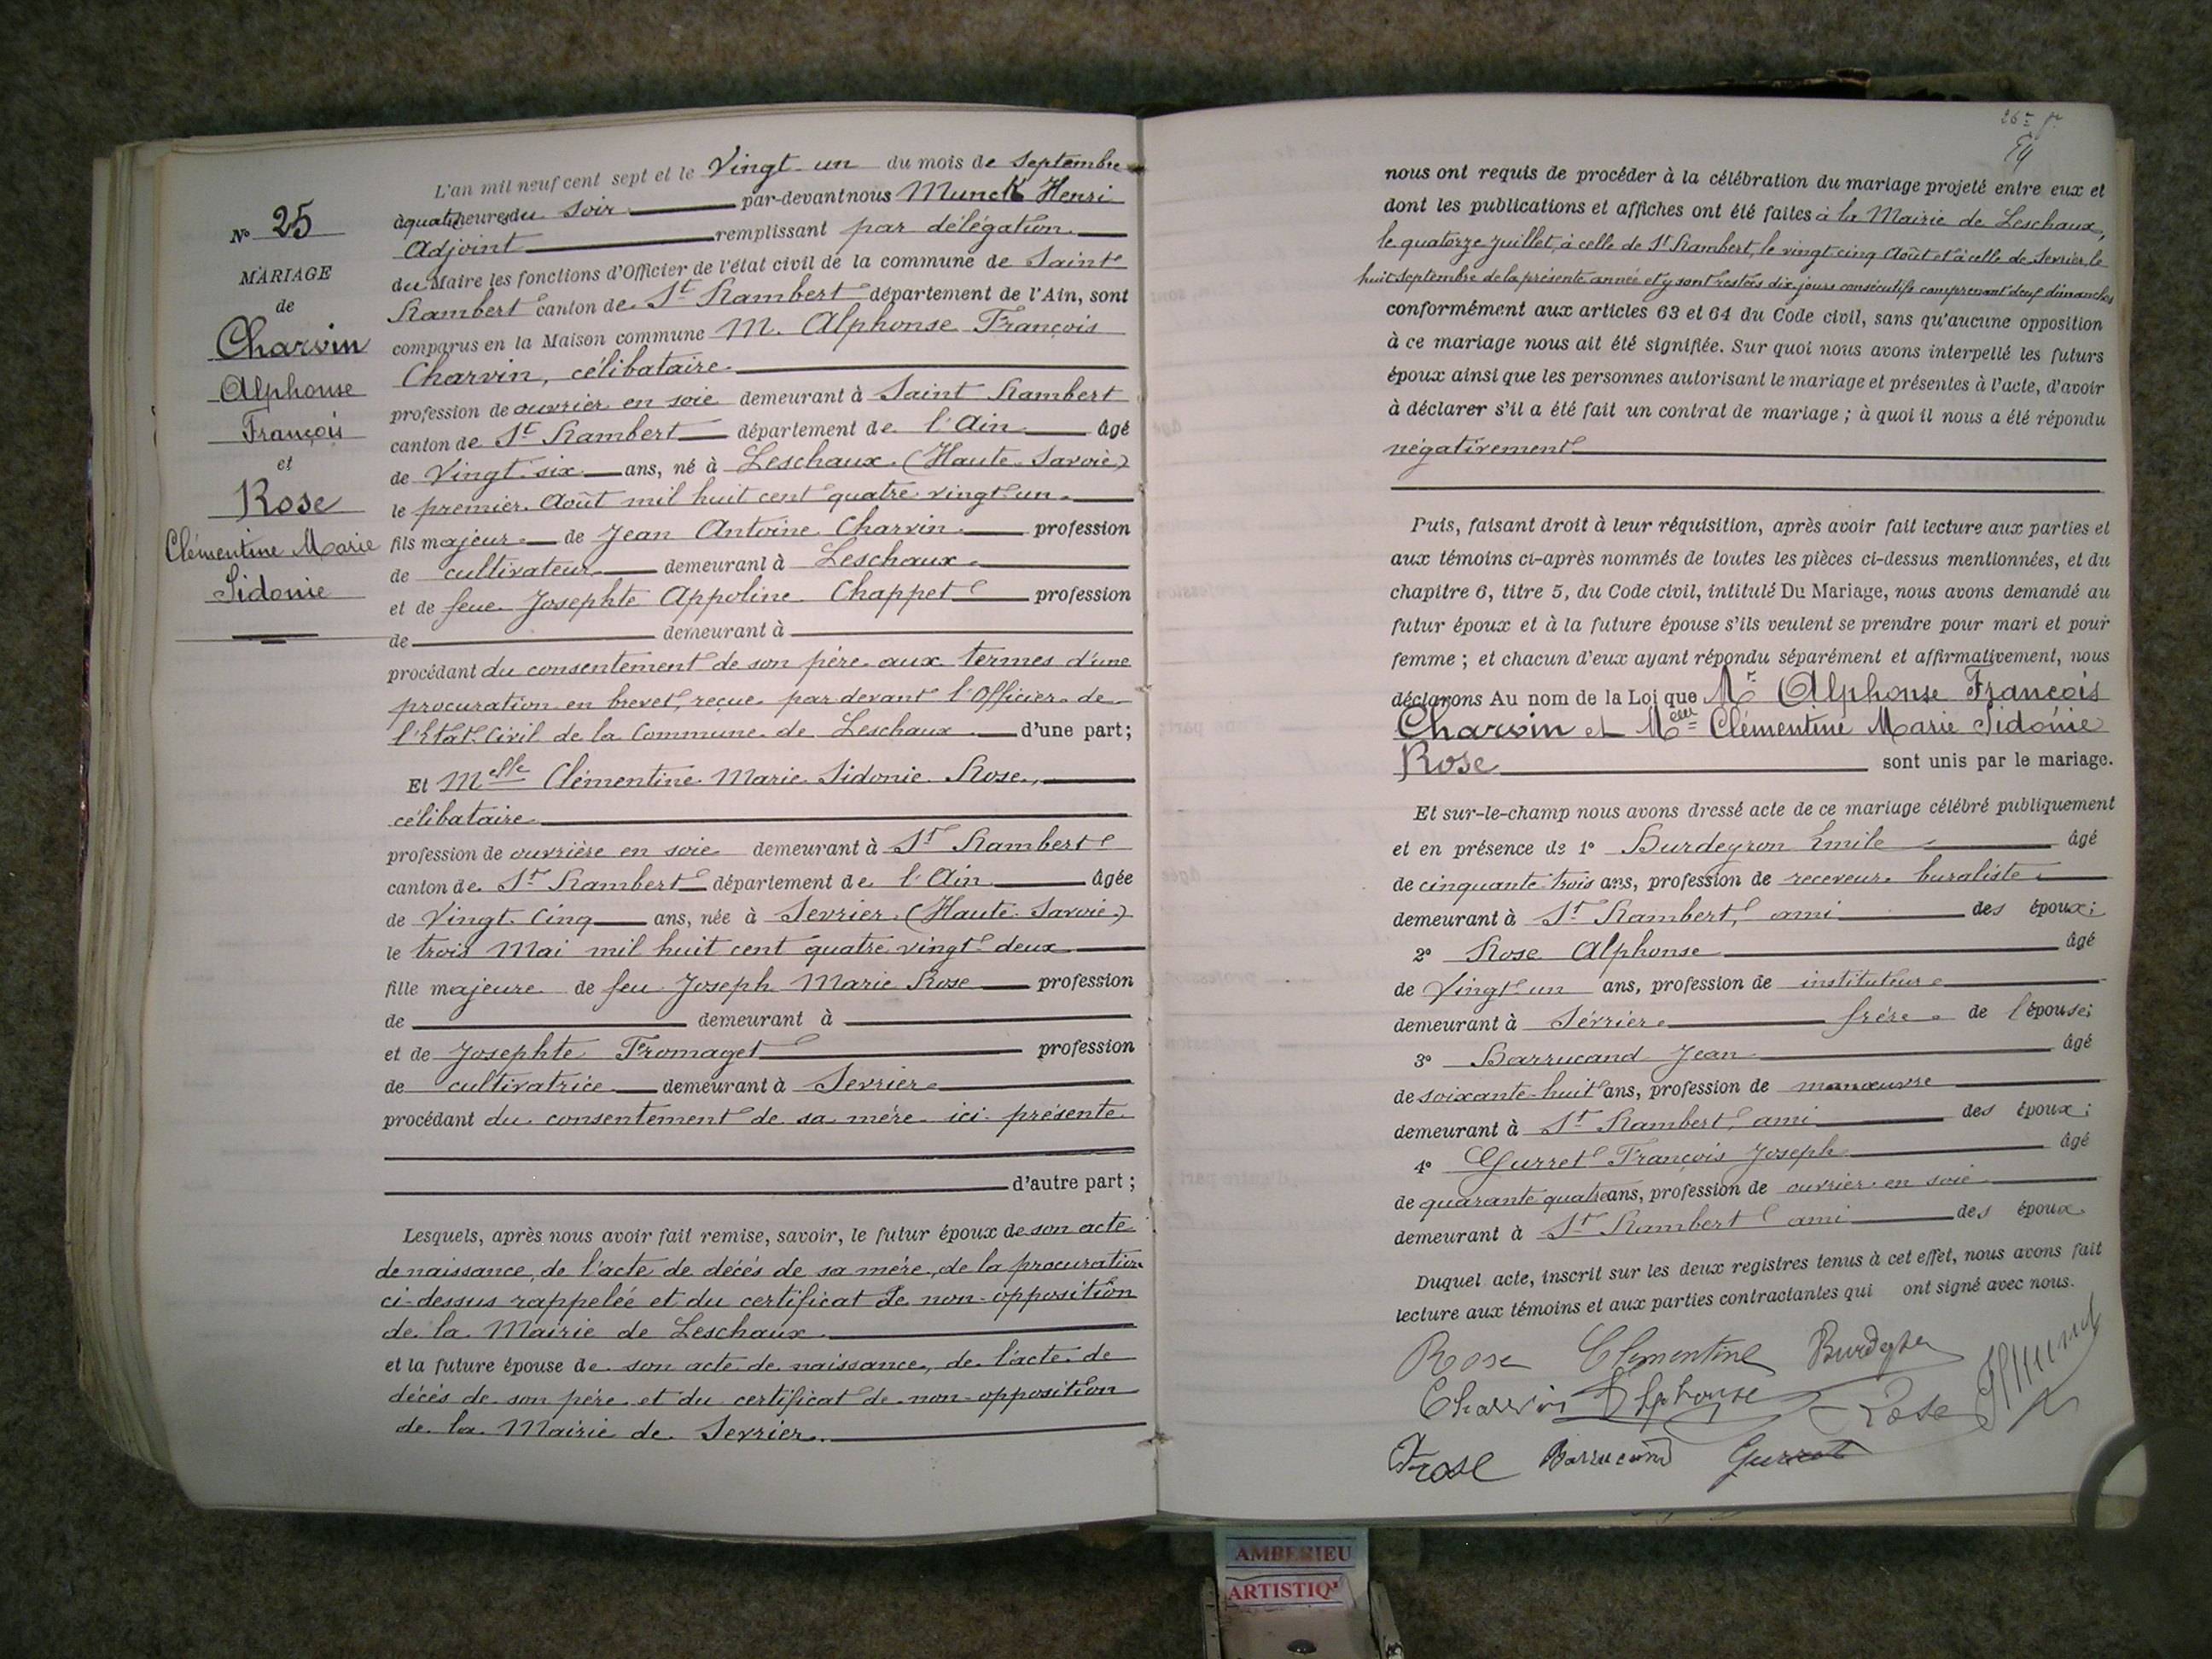 N° 25
MARIAGE
de
Charvin
Alphonse
François
et
Rose
Clémentine Marie
Sidonie
L'an mil neuf cent sept et le Vingt-un du mois de Septembre
à quatre heures du soir par-devant nous Munck Henri
Adjoint remplissant par délégation
du Maire les fonctions d'Officier de l'état civil de la commune de Saint
Rambert canton de St Rambert département de l'Ain, sont
comparus en la Maison commune M. Alphonse François
Charvin, célibataire
profession de ouvrier en soie demeurant à Saint Rambert
canton de St Rambert département de l'Ain âgé
de Vingt-six ans, né à Leschaux (Haute-Savoie)
le premier Août mil huit cent quatre-vingt-un
fils majeur de Jean Antoine Charvin profession
de cultivateur demeurant à Leschaux
et de feue Josephte Appoline Chappet profession
de demeurant à
procédant du consentement de son père aux termes d'une
procuration en brevet, reçue par devant l'Officier de
l'Etat Civil de la Commune de Leschaux d'une part;
Et Melle Clémentine Marie Sidonie Rose,
célibataire
profession de ouvrière en soie demeurant à St Rambert
canton de St Rambert département de l'Ain âgée
de Vingt-Cinq ans, née à Sevrier (Haute-Savoie)
le trois Mai mil huit cent quatre-vingt-deux
fille majeure de feu Joseph Marie Rose profession
de demeurant à
et de Josephte Fromaget profession
de cultivatrice demeurant à Sevrier
procédant du consentement de sa mère ici présente
d'autre part;
Lesquels, après nous avoir fait remise, savoir, le futur époux de son acte
de naissance, de l'acte de décés de sa mère, de la procuration
ci-dessus rappelée et du certificat de non-opposition
de la Mairie de Leschaux
et la future épouse de son acte de naissance, de l'acte de
décés de son père et du certificat de non-opposition
de la Mairie de Sevrier.
nous ont requis de procéder à la célébration du mariage projeté entre eux et
dont les publications et affiches ont été faites à la Mairie de Leschaux,
le quatorze Juillet, à celle de St Rambert, le vingt-cinq Août et à celle de Sevrier, le
huit Septembre de la présente année et y sont restées dix jours consécutifs comprenant deux dimanches
conformément aux articles 63 et 64 du Code civil, sans qu'aucune opposition
à ce mariage nous ait été signifiée. Sur quoi nous avons interpellé les futurs
époux ainsi que les personnes autorisant le mariage et présentes à l'acte, d'avoir
à déclarer s'il a été fait un contrat de mariage; à quoi il nous a été répondu
négativement
Puis, faisant droit à leur réquisition, après avoir fait lecture aux parties et
aux témoins ci-après nommés de toutes les pièces ci-dessus mentionnées, et du
chapitre 6, titre 5, du Code civil, intitulé Du Mariage, nous avons demandé au
futur époux et à la future épouse s'ils veulent se prendre pour mari et pour
femme; et chacun d'eux ayant répondu séparément et affirmativement, nous
déclarons Au nom de la Loi que Mr Alphonse François
Charvin et Melle Clémentine Marie Sidonie
Rose sont unis par le mariage.
Et sur-le-champ nous avons dressé acte de ce mariage célébré publiquement
et en présence de 1° Burdeyron Emile âgé
de cinquante-trois ans, profession de receveur buraliste
demeurant à St Rambert, ami des époux;
2° Rose Alphonse âgé
de Vingt-un ans, profession de instituteur
demeurant à Sévrier frère de l'épouse;
3° Barrucand Jean âgé
de soixante-huit ans, profession de manœuvre
demeurant à St Rambert, ami des époux;
4° Gurret François Joseph âgé
de quarante quatre ans, profession de ouvrier en soie
demeurant à St Rambert ami des époux
Duquel acte, inscrit sur les deux registres tenus à cet effet, nous avons fait
lecture aux témoins et aux parties contractantes qui ont signé avec nous.
Rose Clementine
Charvin Alphonse Rose
Rose Barrucand Gurret
AMBERIEU
ARTISTIQ